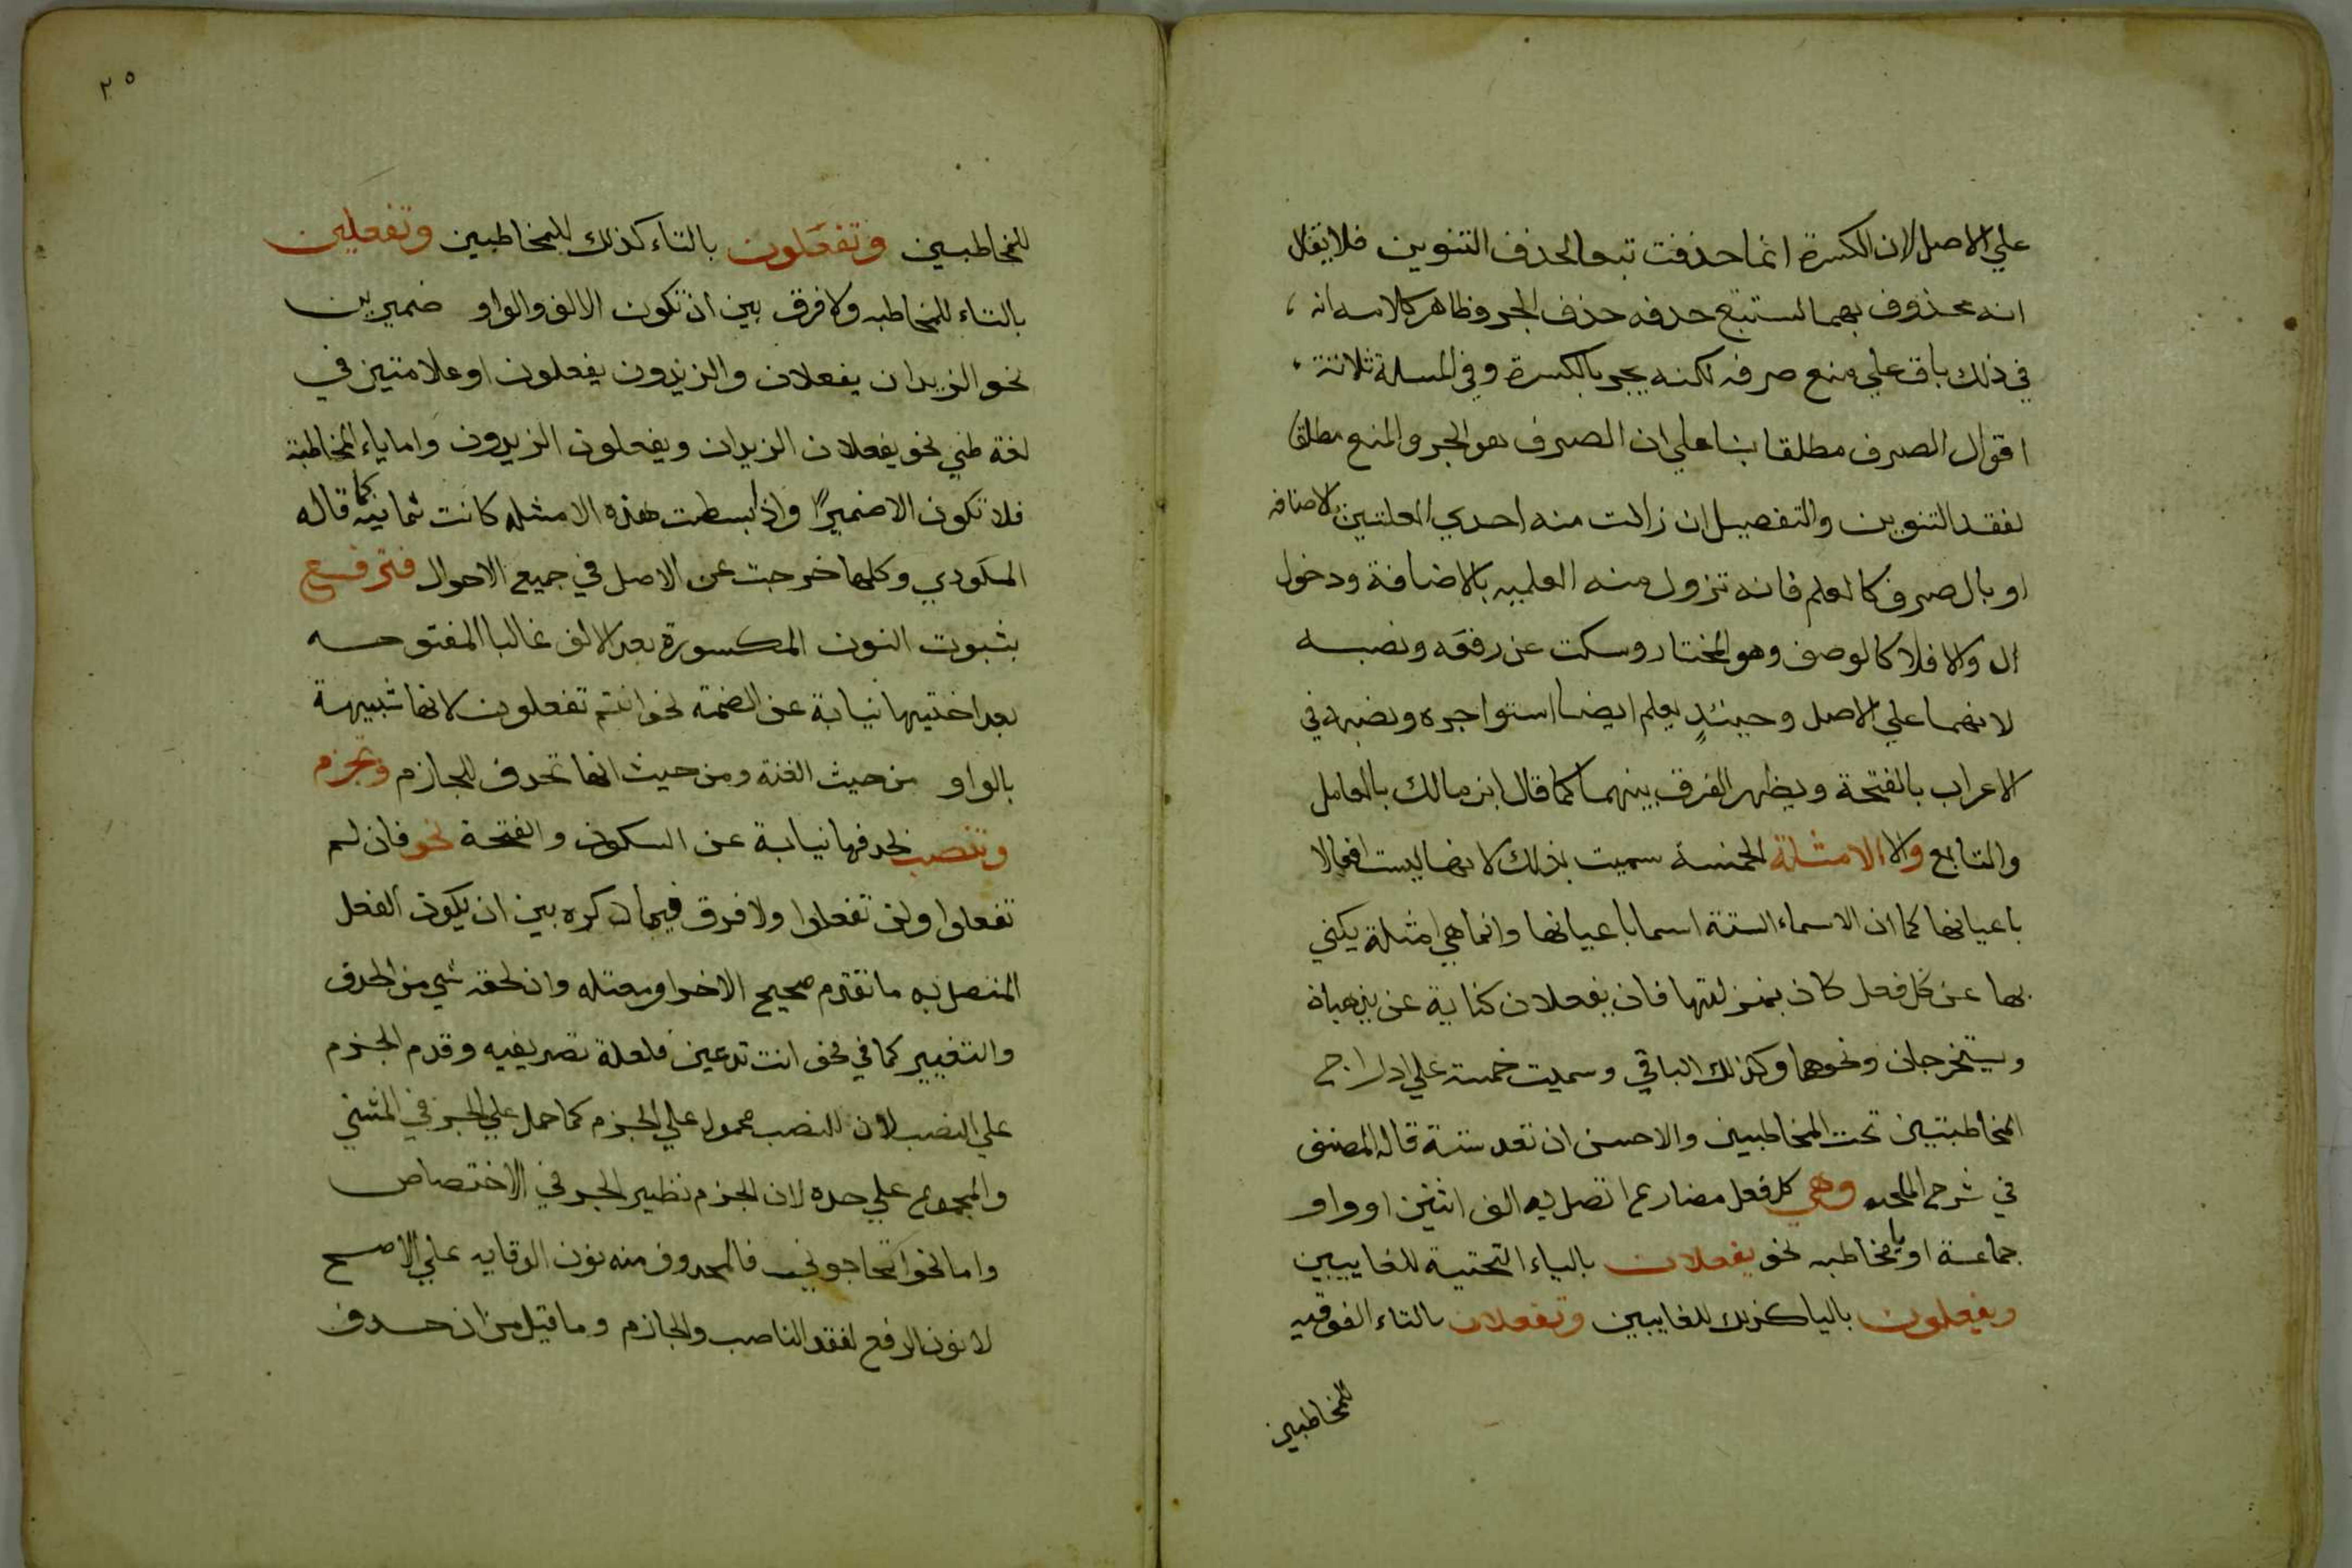 علي الاصل لان الكسرة انما حذفت تبعا لحذف التنوين فلا يقال
انه محذوف بهما لستتبع حدفه حذف الجر وظاهر كلامه انه
في ذلك باق علي منع صرفه لكنه يجر بالكسرة وفي المسلة ثلاثة
اقوال الصرف مطلقا بناء علي ان الصرف هو الجر والمنع مطلقا
لفقد التنوين والتفصيل ان زالت منه احدي العلتين الاضافه
او بال صرف كالعلم فانه تزول منه العلميه بالاضافة ودخول
ال والا فلا كالوصف وهو المختار وسكت عن رفعه ونصبه
لانهما علي الاصل وحينئذٍ يعلم ايضا استوا جره ونصبه في
الاعراب بالفتحة ويظهر الفرق بينهما كما قال ابن مالك بالعامل
والتابع والا الامثلة الخمسة سميت بذلك لانها ليست افعالا
باعيانها كما ان الاسماء الستة اسما باعيانها وانما هي امثلة يكني
بها عن كل فعل كان بمنزلتها فان يفعلان كناية عن يذهبان
ويستخرجان ونحوهما وكذلك الباقي وسميت خمسة علي ادراج
المخاطبتين تحت المخاطبين والاحسن ان تعد ستة قاله المصنف
في شرح اللمحه وهي كل فعل مضارع اتصل به الف اثنين او واو
جماعة او يا مخاطبه نحو يفعلان بالياء التحتية للغايبين
ويفعلون باليا كذلك للغايبين وتفعلان بالتاء الفوقيه
للمخاطبين
٢٥
للمخاطبين وتفعَلون بالتاء كذلك للمخاطبين وتفعلين
بالتاء للمخاطبه ولا فرق بين ان تكون الالف والواو ضميرين
نحو الزيدان يفعلان والزيدون يفعلون او علامتين في
لغة طئ نحو يفعلان الزيدان ويفعلون الزيدون واما ياء المخاطبة
فلا تكون الا ضميرًا واذا بسطت هذه الامثله كانت ثمانية كما قاله
المكودي وكلها خرجت عن الاصل في جميع الاحوال فترفع
بثبوت النون المكسورة بعد الالف غالبا المفتوحه
بعد اختيها نيابة عن الضمة نحو انتم تفعلون لانها شبيهة
بالواو من حيث الغنة ومن حيث انها تحدف للجازم وتجزم
وتنصب بحدفها نيابة عن السكون والفتحة نحو فان لم
تفعلوا ولن تفعلوا ولا فرق فيما ذكره بين ان يكون الفعل
المتصل به ما تقدم صحيح الاخر او معتله وان لحقه شي من الحذف
والتغيير كما في نحو انت تدعين فلعلة تصريفيه وقدم الجزم
علي النصب لان النصب محمول علي الجزم كما حمل علي الجر في المثني
والمجموع علي حده لان الجزم نظير الجر في الاختصاص
واما نحو اتحاجوني فالمحدوف منه نون الوقايه علي الاصح
لا نون الرفع لفقد الناصب والجازم وما قيل من ان حدف